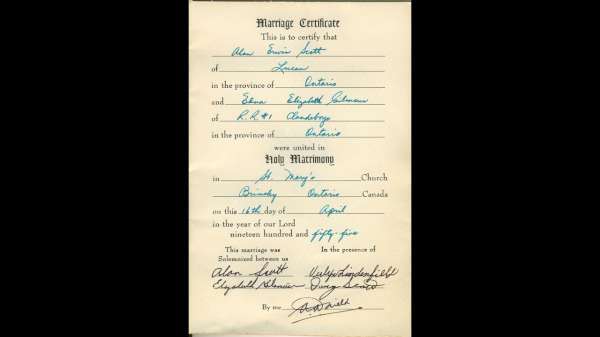 Marriage Certificate
This is to certify that
Alan Erwin Scott
of Lucan
in the province of Ontario
and Edna Elizabeth Gilmour
of R.R. #1 Clandeboye
in the province of Ontario
were united in
Holy Matrimony
in St. Mary's Church
Brinsley Ontario Canada
on this 16th day of April
in the year of our Lord
nineteen hundred and fifty-five
This marriage was In the presence of
Solemnized between us
Alan Scott
Elizabeth Gilmour Doug Scott
By me